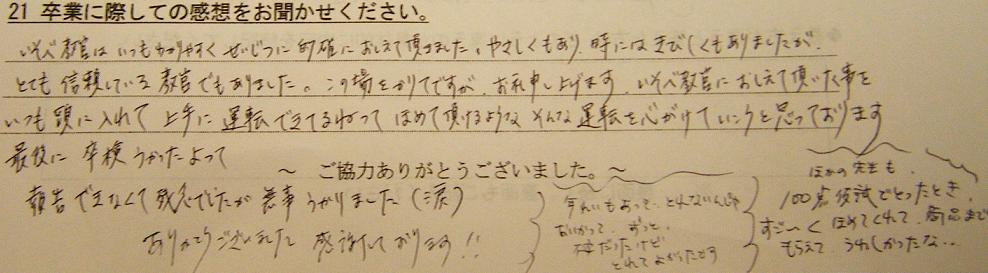 21 卒業に際しての感想をお聞かせください。
いそべ教官はいつもわかりやすく せいじつに的確におしえて頂きました。やさしくもあり、時にはきびしくもありましたが、
とても信頼している教官でもありました。この場をかりてですが、お礼申し上げます。いそべ教官におしえて頂いた事を
いつも頭に入れて 上手に運転できてるねって ほめて頂けるような そんな運転を心がけていこうと思っております
最後に 卒検うかったよって
〜 ご協力ありがとうございました。〜
報告できなくて残念でしたが無事うかりました(涙)
ありがとうございました 感謝しております!!
年れいもあって、とれないんじゃ
ないかって、ずっと、
不安だったけど
とれてよかったです
ほかの先生も、
100点仮試でとったとき、
すご〜くほめてくれて、商品まで
もらえて、うれしかったな…